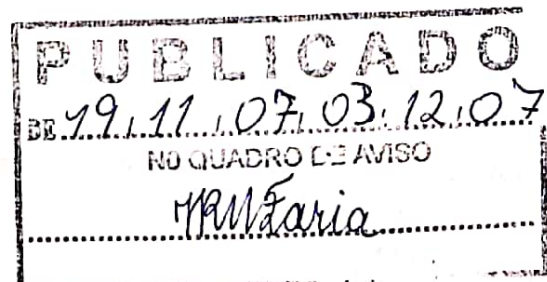 PUBLICADO
DE 19.11.07, 03.12.07
NO QUADRO DE AVISO